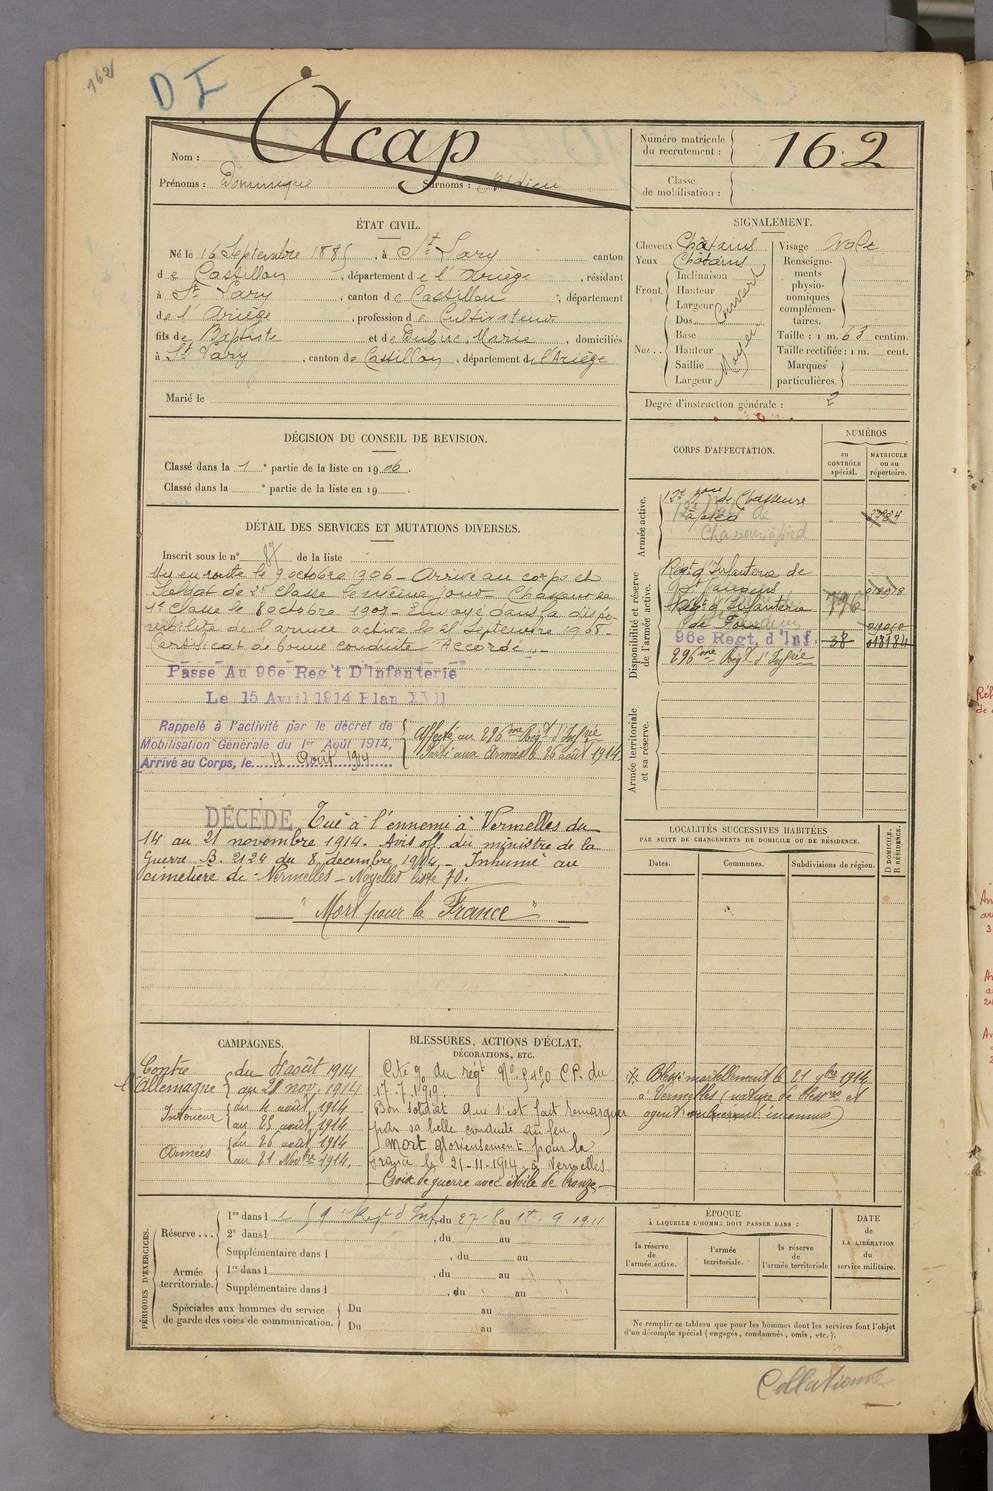 162
D I
Nom : Acap
Prénoms : Dominique Surnoms :
Numéro matricule du recrutement : 162
Classe de mobilisation :
ÉTAT CIVIL.
Né le 16 Septembre 1885, à St Lary canton
de Castillon, département de l'Ariège, résidant
à St Lary, canton de Castillon, département
de l'Ariège, profession de Cultivateur
fils de Baptiste et de Dubuc, Marie, domiciliés
à St Lary, canton de Castillon, département de l'Ariège
Marié le
SIGNALEMENT.
Cheveux Châtains
Yeux Châtains
Front Inclinaison
Hauteur
Largeur
Couvert
Nez Dos
Base
Hauteur
Saillie
Largeur
Moyen
Visage Ovale
Renseignements physionomiques complémentaires.
Taille : 1 m. 63 centim.
Taille rectifiée : 1 m. cent.
Marques particulières.
Degré d'instruction générale : 2
DÉCISION DU CONSEIL DE REVISION.
Classé dans la 1e partie de la liste en 1906.
Classé dans la e partie de la liste en 19 .
DÉTAIL DES SERVICES ET MUTATIONS DIVERSES.
Inscrit sous le n° 87 de la liste
Mis en route le 9 octobre 1906 - Arrivé au corps et
Soldat de 2e classe le même jour - Chasseur de
1e Classe le 8 octobre 1907 - Envoyé dans la dispo-
nibilité de l'armée active le 25 Septembre 1908 -
Certificat de bonne conduite "Accordé" -
Passé Au 96e Reg't D'Infanterie
Le 15 Avril 1914 Plan XVII
Rappelé à l'activité par le décret de
Mobilisation Générale du 1er Août 1914,
Arrivé au Corps, le 4 Août 1914
Affecté au 296me Regt d'Infrie
Parti aux Armées le 26 août 1914.
DÉCÉDÉ Tué à l'ennemi à Vermelles du
14 au 21 novembre 1914. Avis off. du ministre de la
Guerre B. 2124 du 8 décembre 1914 - Inhumé au
cimetière de Vermelles - Noyelles liste 70.
"Mort pour la France"
CORPS D'AFFECTATION.
NUMÉROS
au CONTRÔLE spécial.
MATRICULE ou au répertoire.
Armée active.
12e Bon de Chasseurs
à pied
Chasseurs à pied
Disponibilité et réserve de l'armée active.
Regt d'Infanterie de
Regt d'Infanterie
de 776
96e Regt. d'Inf. 38 018184
296me Regt d'Infrie
Armée territoriale et sa réserve.
LOCALITÉS SUCCESSIVES HABITÉES
PAR SUITE DE CHANGEMENTS DE DOMICILE OU DE RÉSIDENCE.
Dates. Communes. Subdivisions de région.
D DOMICILE. R RÉSIDENCE.
* Blessé mortellement le 21 9bre 1914
à Vermelles (nature de blessures et
agent vulnérant inconnus)
CAMPAGNES.
Contre l'Allemagne du 4 août 1914
au 21 nov. 1914
Intérieur du 4 août 1914
au 25 août 1914
Armées du 26 août 1914
au 21 Novbre 1914.
BLESSURES, ACTIONS D'ÉCLAT,
DÉCORATIONS, ETC.
Cité à O. du régt C.P. du
17.7.1919.
Bon soldat qui s'est fait remarquer
par sa belle conduite au feu
Mort glorieusement pour la
France le 21-11-1914 à Vermelles.
- Croix de guerre avec étoile de bronze -
PÉRIODES D'EXERCICES.
Réserve...
1re dans le 59e Regt d'Inf. du 27-8 au 9 1911
2e dans l , du au
Supplémentaire dans l , du au
Armée territoriale.
1re dans l , du au
Supplémentaire dans l , du au
Spéciales aux hommes du service de garde des voies de communication.
Du au
Du au
ÉPOQUE
À LAQUELLE L'HOMME DOIT PASSER DANS :
la réserve de l'armée active.
l'armée territoriale.
la réserve de l'armée territoriale
DATE de LA LIBÉRATION du service militaire.
Ne remplir ce tableau que pour les hommes dont les services font l'objet
d'un décompte spécial (engagés, condamnés, omis, etc.).
Collationné